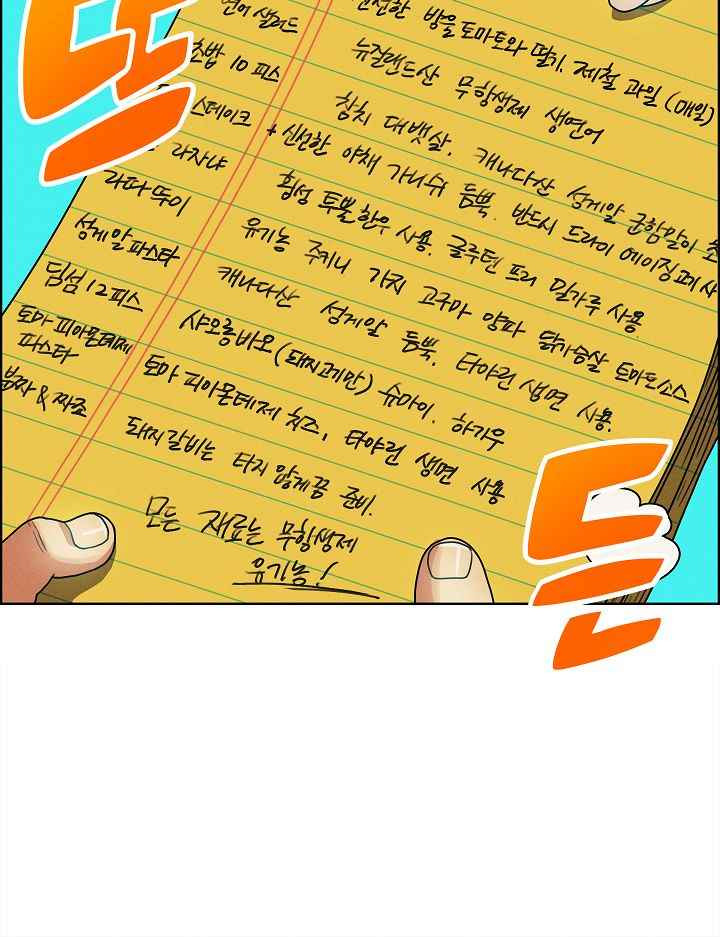 또
연어 샐러드
신선한 방울토마토와 딸기. 제철 과일 (매일)
초밥 10 피스
뉴질랜드산 무항생제 생연어
스테이크
참치 대뱃살. 캐나다산 성게알 군함말이
라자냐
+ 신선한 야채 가니쉬 듬뿍. 반드시 드라이 에이징
라따뚜이
횡성 투뿔한우 사용. 글루텐 프리 밀가루 사용.
성게알 파스타
유기농 주키니 가지 고구마 양파 닭가슴살 토마토소스
딤섬 12피스
캐나다산 성게알 듬뿍. 타야린 생면 사용.
토마 피아몬테제
파스타
샤오롱바오 (돼지고기만) 슈마이. 하가우
분짜 & 짜조
토마 피아몬테제 치즈, 타야린 생면 사용
돼지갈비는 타지 않게끔 준비.
모든 재료는 무항생제
유기농!
든